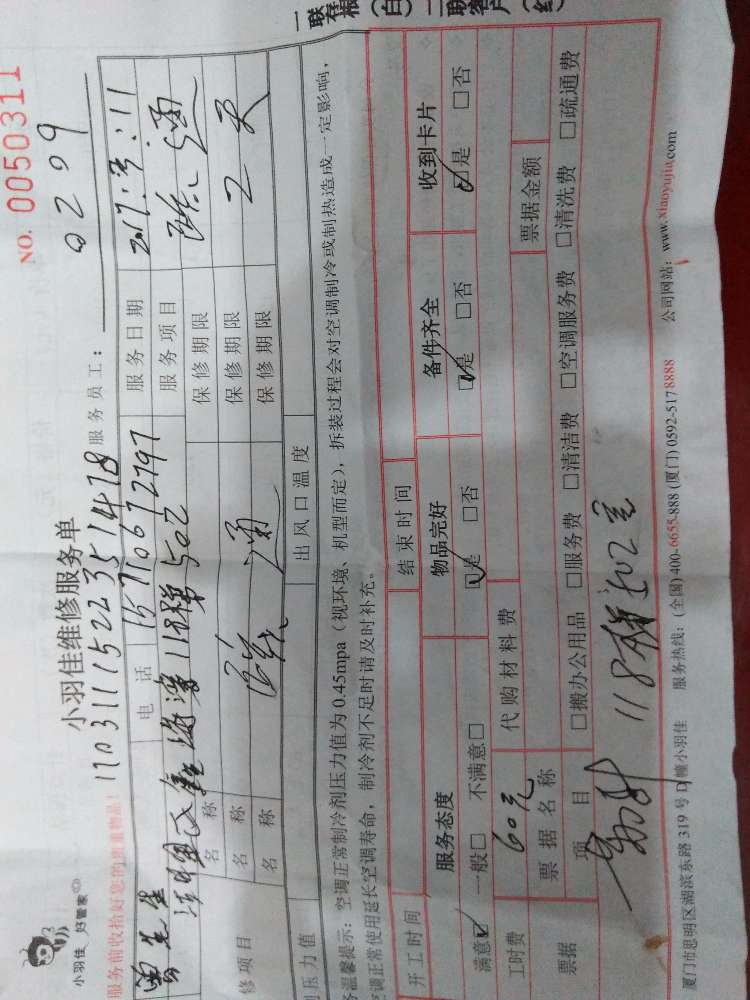 NO. 0050311
小羽佳维修服务单
小羽佳 好管家
1703111522351478
服务员工：
0209
服务前收拾好您的贵重物品！
先生
电 话
15710672797
服务日期
2017.3.11
118梯502
服务项目
疏通
名 称
保修期限
修项目
名 称
疏通
保修期限
2天
名 称
保修期限
压力值
出风口温度
务温馨提示：空调正常制冷剂压力值为0.45mpa（视环境、机型而定），拆装过程会对空调制冷或制热造成一定影响，
空调正常使用延长空调寿命，制冷剂不足时请及时补充。
开工时间
结束时间
服务态度
物品完好
备件齐全
收到卡片
满意☑ 一般□ 不满意□
☑是 □否
☑是 □否
☑是 □否
工时费
60元
代购材料费
票据
票据名称
票据金额
项 目
□搬办公用品 □服务费 □清洁费 □空调服务费 □清洗费 □疏通费
118梯502室
厦门市思明区湖滨东路 319 号 D 幢小羽佳
服务热线：(全国)400-6655-888 (厦门)0592-5178888
公司网站：www.xiaoyujia.com
一联存根(白)
二联客户(红)